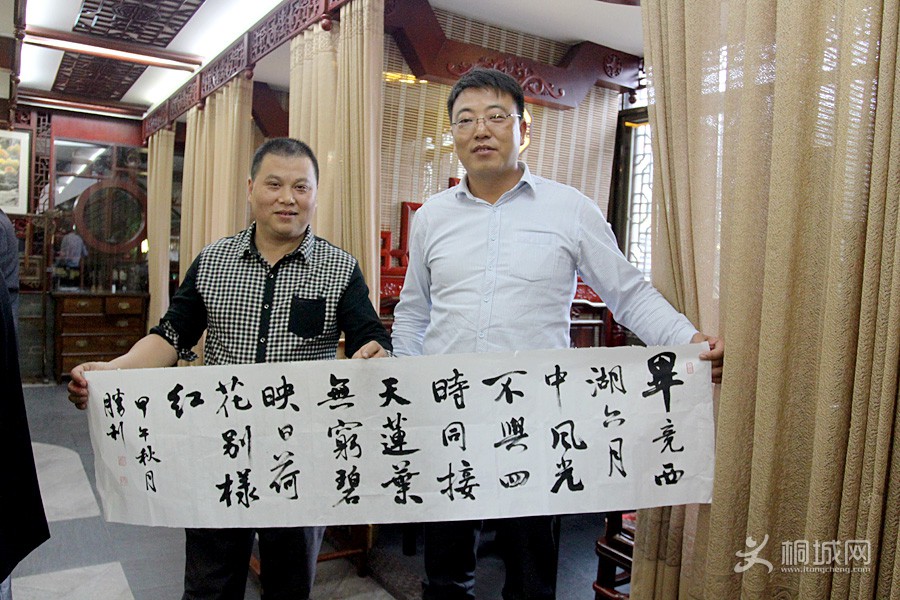 畢竟西
湖六月
中风光
不與四
時同接
天蓮葉
無窮碧
映日荷
花别樣
红
甲午秋月
勝利
桐城网
www.itongcheng.com